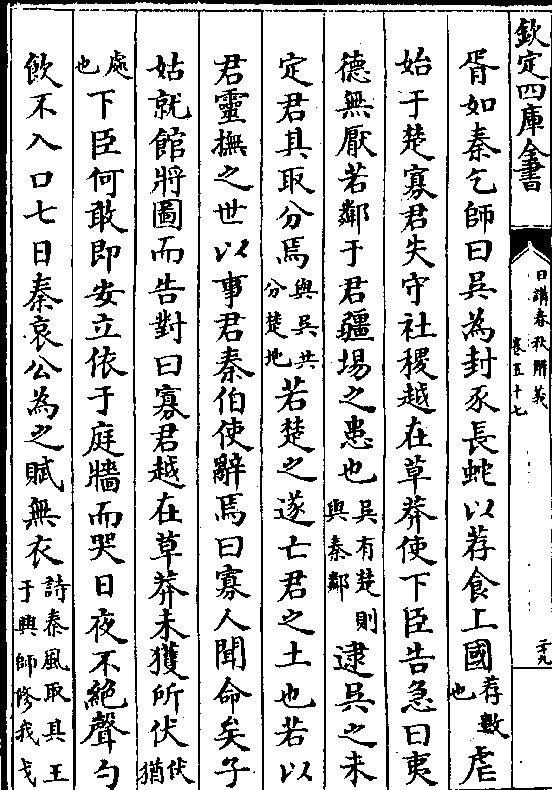 欽定四庫全書
日講春秋解義
卷五十七
二十九
胥如秦乞師曰吳為封豕長蛇以荐食上國荐數也虐
始于楚寡君失守社稷越在草莽使下臣告急曰夷
德無厭若鄰于君疆場之患也吳有楚則與秦鄰逮吳之未
定君其取分焉與吳共分楚地若楚之遂亡君之土也若以
君靈撫之世以事君秦伯使辭焉曰寡人聞命矣子
姑就館將圖而告對曰寡君越在草莽未獲所伏伏猶
處也下臣何敢即安立依于庭牆而哭日夜不絕聲勺
飲不入口七日秦哀公為之賦無衣詩秦風取其王于興師修我戈